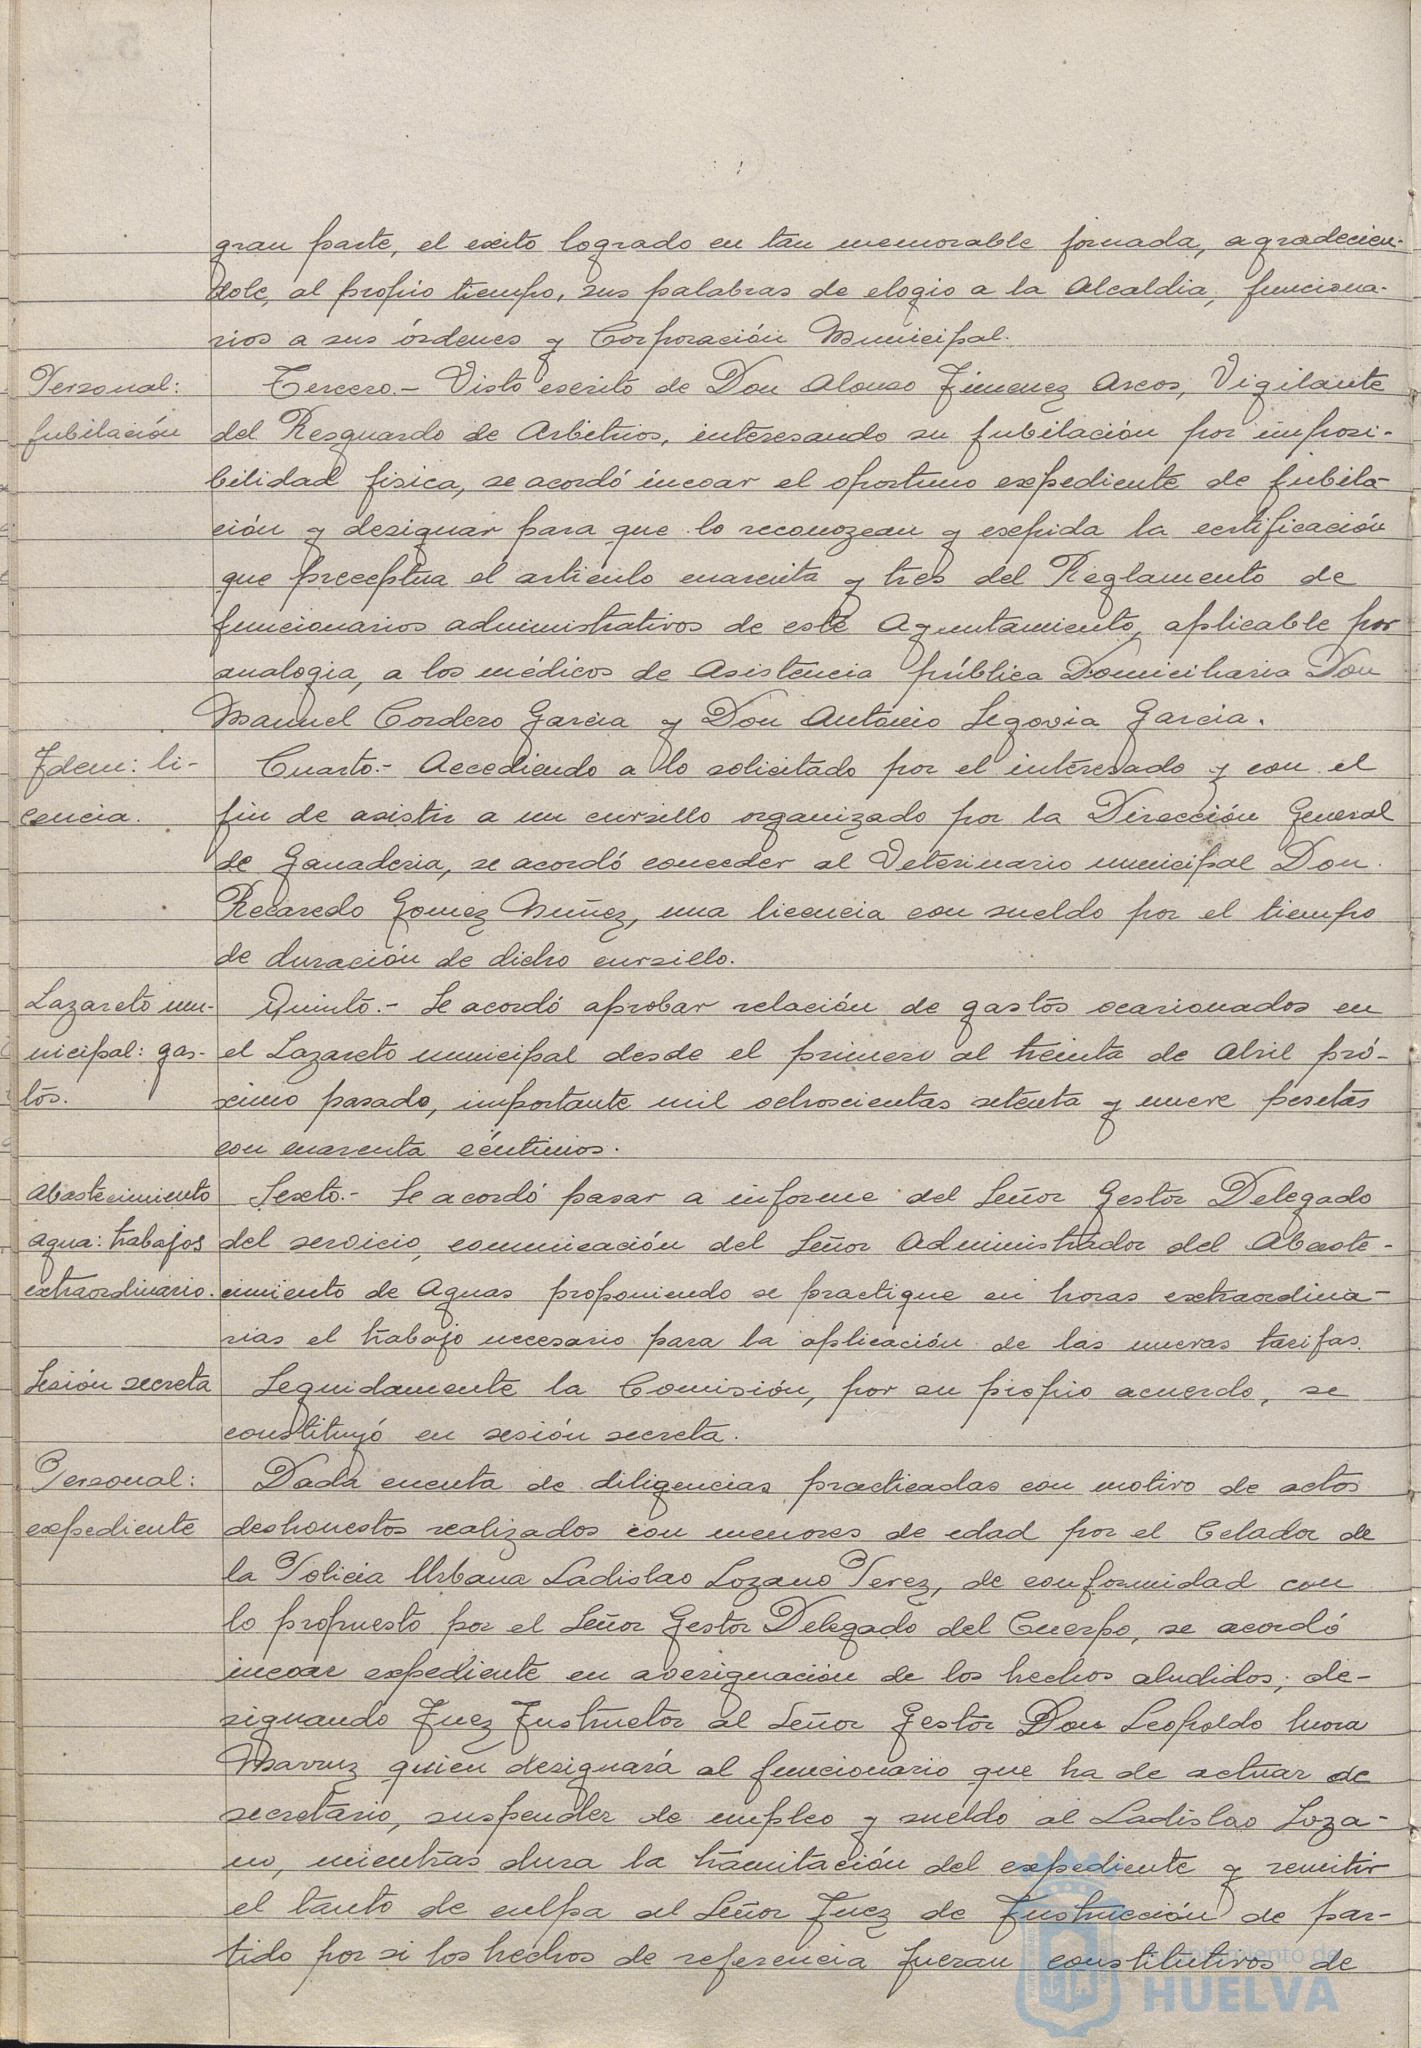 gran parte, el exito logrado en tan memorable jornada, agradecien-
dole, al propio tiempo, sus palabras de elogio a la Alcaldia, funciona-
rios a sus órdenes y Corporación Municipal.
Personal:
jubilación
Tercero.- Visto escrito de Don Alonso Jimenez Arcos, Vigilante
del Resguardo de Arbitrios, interesando su jubilación por imposi-
bilidad fisica, se acordó incoar el oportuno expediente de jubila-
ción y designar para que lo reconozcan y expida la certificación
que preceptua el articulo cuarenta y tres del Reglamento de
funcionarios administrativos de este Ayuntamiento, aplicable por
analogia, a los médicos de Asistencia pública Domiciliaria Don
Manuel Cordero Garcia y Don Antonio Segovia Garcia.
Idem: li-
cencia.
Cuarto.- Accediendo a lo solicitado por el interesado y con el
fin de asistir a un cursillo organizado por la Dirección General
de Ganaderia, se acordó conceder al Veterinario municipal Don
Recaredo Gomez Nuñez, una licencia con sueldo por el tiempo
de duración de dicho cursillo.
Lazareto mu-
nicipal: gas-
tos.
Quinto.- Se acordó aprobar relación de gastos ocasionados en
el Lazareto municipal desde el primero al treinta de Abril pró-
ximo pasado, importante mil ochoscientas setenta y nueve pesetas
con cuarenta céntimos.
Abastecimiento
agua: trabajos
extraordinario.
Sexto.- Se acordó pasar a informe del Señor Gestor Delegado
del servicio, comunicación del Señor Administrador del Abaste-
cimiento de Aguas proponiendo se practique en horas extraordina-
rias el trabajo necesario para la aplicación de las nuevas tarifas.
Sesión secreta
Seguidamente la Comisión, por su propio acuerdo, se
constituyó en sesión secreta.
Personal:
expediente
Dada cuenta de diligencias practicadas con motivo de actos
deshonestos realizados con menores de edad por el Celador de
la Policia Urbana Ladislao Lozano Perez, de conformidad con
lo propuesto por el Señor Gestor Delegado del Cuerpo, se acordó
incoar expediente en averiguación de los hechos aludidos; de-
signando Juez Instructor al Señor Gestor Don Leopoldo
Marruz quien designará al funcionario que ha de actuar de
secretario, suspender de empleo y sueldo al Ladislao Loza-
no, mientras dura la tramitación del expediente y remitir
el tanto de culpa al Señor Juez de Instrucción de par-
tido por si los hechos de referencia fueran constitutivos de
Ayuntamiento de
HUELVA